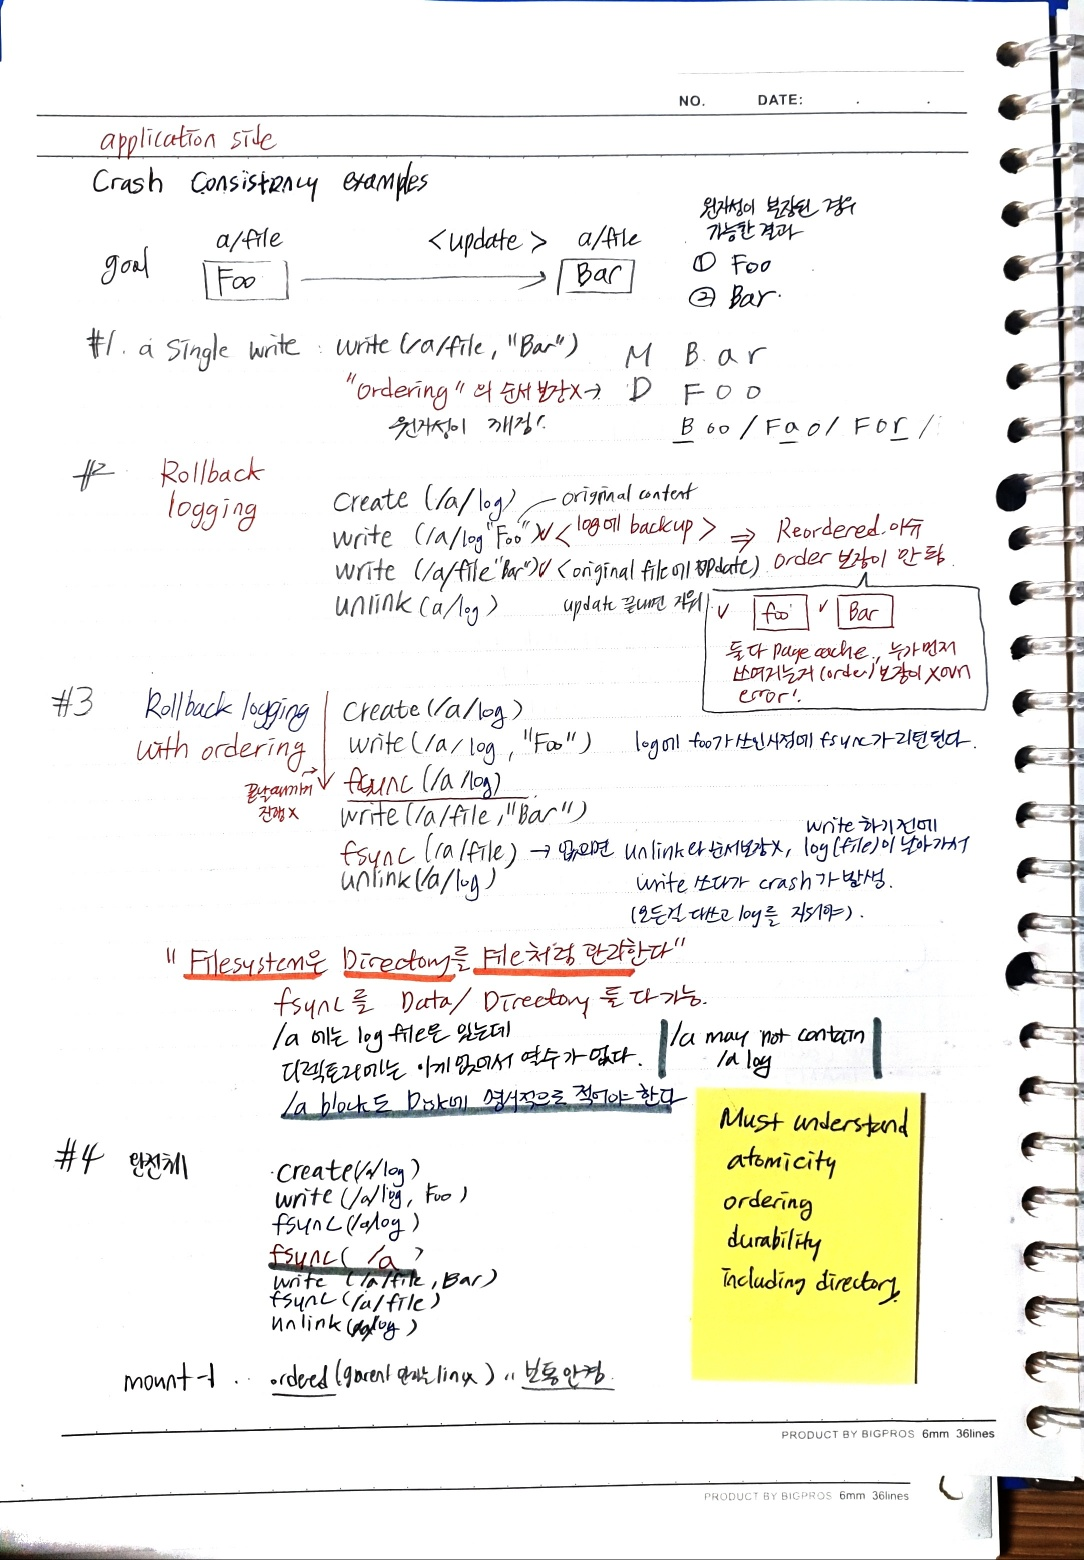 NO. DATE: . .
application side
Crash Consistency examples
원자성이 보장된 경우
가능한 결과
① Foo
② Bar.
goal a/file <update> a/file
Foo Bar
#1. a Single write : write(/a/file, "Bar") M B a r
"Ordering"의 순서보장X→ D F O O
원자성이 깨짐! Boo / Fao / For /
#2 Rollback
logging
create (/a/log) original content
write (/a/log "Foo")✓ <log에 backup> ⇒ Reordered.이슈
write (/a/file "Bar")✓ <original file에 update) order 보장이 안됨.
unlink (a/log) update 끝내면 지워
✓ foo ✓ Bar
둘다 page cache, 누가먼저
쓰여지는거(order) 보장이 X
error!
#3 Rollback logging
with ordering
create(/a/log)
write(/a/log, "Foo") log에 foo가 쓰인시점에 fsync가 리턴된다.
끝날때까지 → fsync (/a/log)
진행X
write(/a/file, "Bar")
fsync (/a/file) → 없으면 unlink와 순서보장X, write 하기전에 log(file)이 날아가서
unlink(/a/log) write 쓰다가 crash가 발생.
(모든걸 다쓰고 log를 지워야).
"Filesystem은 Directory를 File처럼 관리한다"
fsync를 Data/ Directory 둘 다 가능.
/a 에는 log file은 있는데
디렉토리에는 이게 없어서 열수가 없다.
/a may not contain
/a log
/a block도 Disk에 명시적으로 적어야 한다
Must understand
atomicity
ordering
durability
including directory.
#4 완전체
create(/a/log)
write(/a/log, Foo)
fsync(/a/log)
fsync( /a )
write (/a/file, Bar)
fsync(/a/file)
unlink( log)
mount -l .. ordered ( linux) .. 보통안정.
PRODUCT BY BIGPROS 6mm 36lines
PRODUCT BY BIGPROS 6mm 36lines